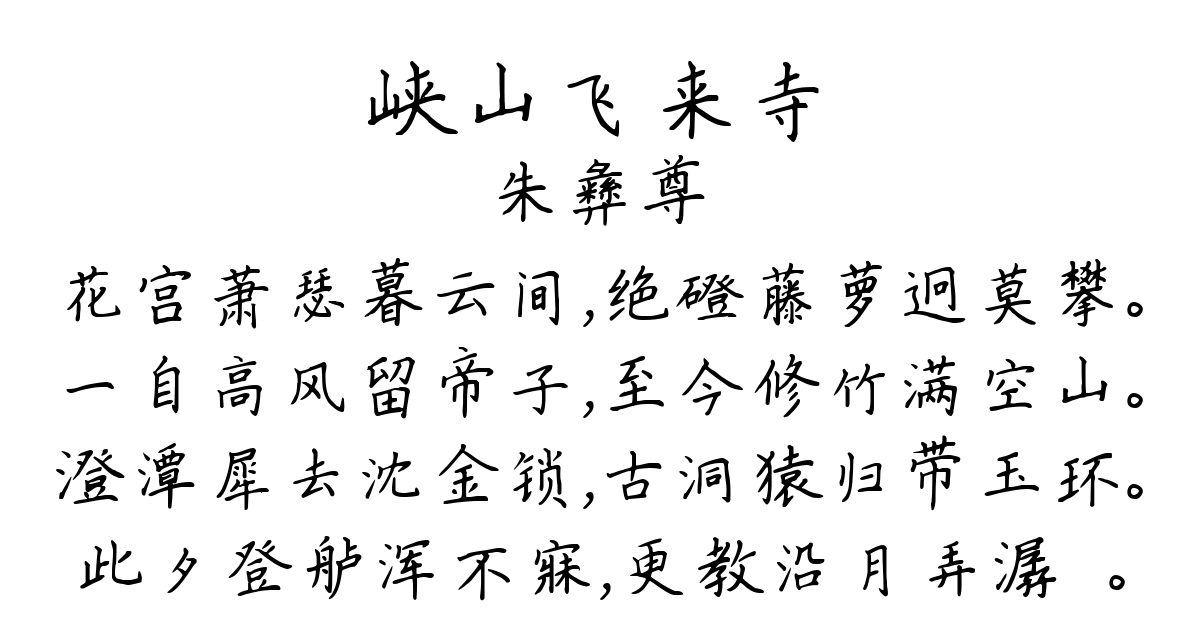 峡山飞来寺
朱彝尊
花宫萧瑟暮云间,绝磴藤萝迥莫攀。
一自高风留帝子,至今修竹满空山。
澄潭犀去沈金锁,古洞猿归带玉环。
此夕登舻浑不寐,更教沿月弄潺 。